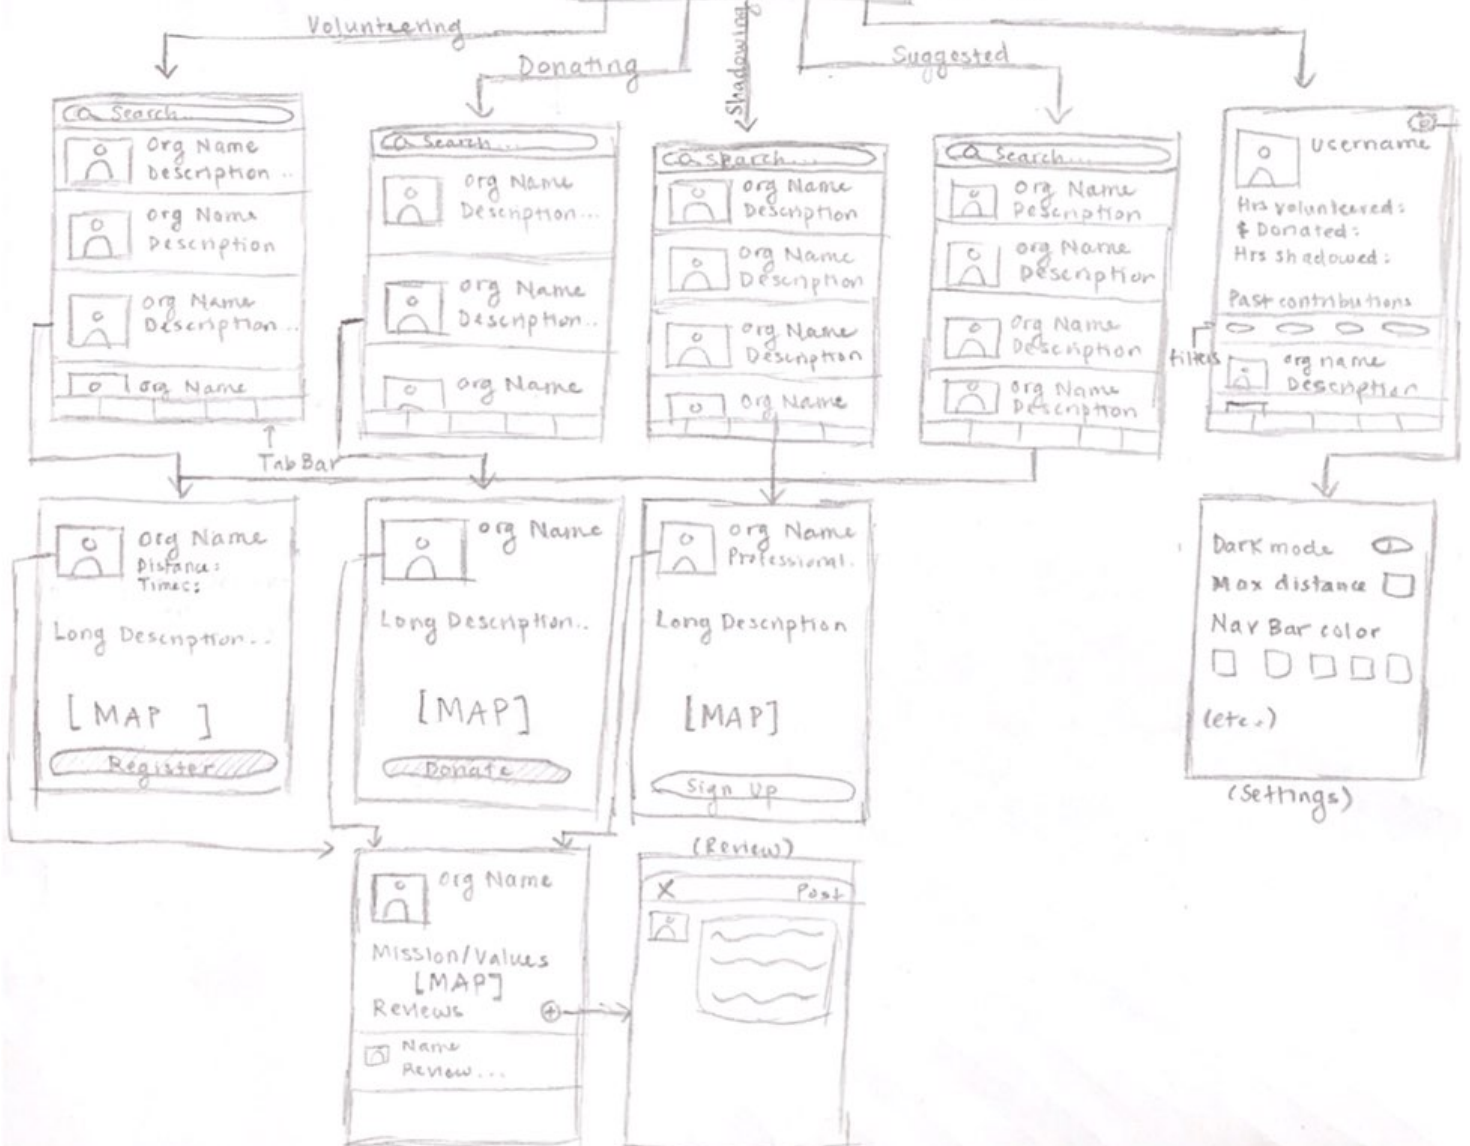 Volunteering
Donating
Shadowing
Suggested
Search...
Org Name
Description ..
Org Name
Description
Org Name
Description..
Org Name
Tab Bar
Search...
Org Name
Description...
Org Name
Description..
Org Name
Search...
Org Name
Description
Org Name
Description
Org Name
Description
Org Name
Search...
Org Name
Description
Org Name
Description
Org Name
Description
Org Name
Description
Username
Hrs volunteered:
$ Donated:
Hrs shadowed:
Past contributions
filters
org name
Description
Org Name
Distance:
Times:
Long Description...
[MAP ]
Register
Org Name
Long Description..
[MAP]
Donate
Org Name
Professional.
Long Description
[MAP]
Sign Up
Dark mode
Max distance
Nav Bar color
(etc.)
(Settings)
Org Name
Mission/Values
[MAP]
Reviews
Name
Review...
(Review)
X Post